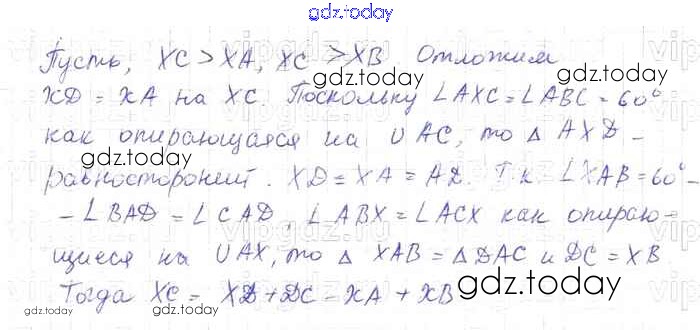 gdz.today
Пусть, XC > XA, XC > XB Отложим
XD = XA на XC. Поскольку ∠AXC = ∠ABC = 60°
gdz.today
как опирающаяся на ∪AC, то △ AXD -
gdz.today
равносторонний. XD = XA = AD. Т.к. ∠XAB = 60° -
- ∠BAD = ∠CAD, ∠ABX = ∠ACX как опираю-
gdz.today
щиеся на ∪AX, то △ XAB = △DAC и DC = XB.
gdz.today
Тогда XC = XD + DC = XA + XB
gdz.today
gdz.today